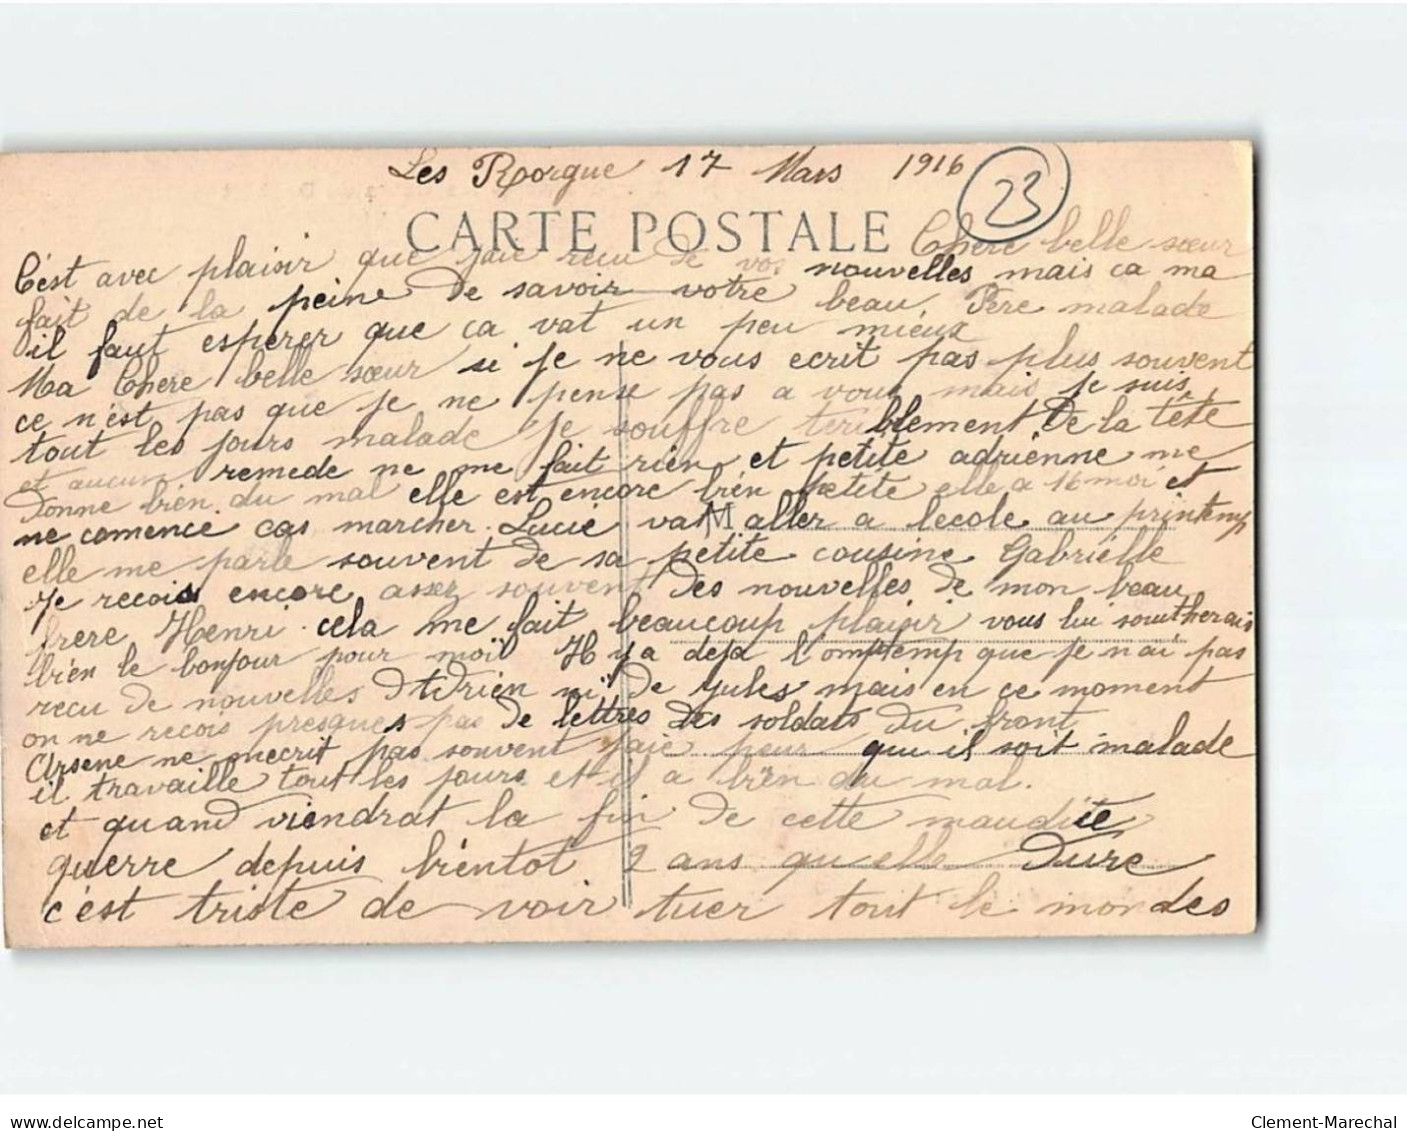 Les Rorgue 17 Mars 1916
23
CARTE POSTALE
Chere belle sœur
C'est avec plaisir que jaie recu de vos nouvelles mais ca ma
fait de la peine de savoir votre beau Pere malade
il faut esperer que ca vat un peu mieux
Ma Chere belle sœur si je ne vous ecrit pas plus souvent
ce n'est pas que je ne pense pas a vous mais je suis
tout les jours malade je souffre teriblement de la tête
et aucun remede ne me fait rien et petite adrienne me
donne bien du mal elle est encore bien petite elle a 16 moi et
ne comence pas marcher. Lucie vat aller a lecole au printemp
elle me parle souvent de sa petite cousine Gabrielle
Je recois encore assez souvent des nouvelles de mon beau
frere Henri cela me fait beaucoup plaisir vous lui
bien le bonjour pour moi Il y a deja l'omptemp que je n'ai pas
recu de nouvelles dAdrien ni de Jules mais en ce moment
on ne recois presques pas de lettres des soldats du front
Arsene ne mecrit pas souvent jaie peur qui il soit malade
il travaille tout les jours et il a bien du mal.
et quand viendrat la fin de cette maudite
guerre depuis bientot 2 ans qu elle dure
c'est triste de voir tuer tout le mondes
Clement-Marechal
www.delcampe.net